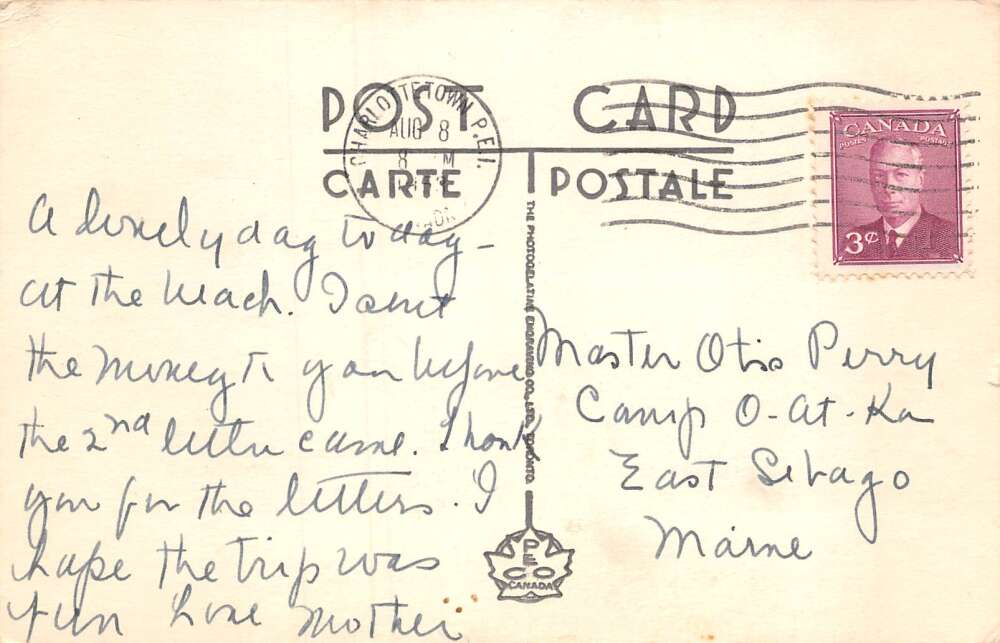 POST CARD
CARTE POSTALE
CHARLOTTETOWN P.E.I.
AUG 8
8 M
CANADA
POSTES POSTAGE
3¢
A lovely day today -
at the beach. I sent
the money to you before
the 2nd letter came. Thank
you for the letters. I
hope the trip was
fun Love Mother
Master Otis Perry
Camp O-At-Ka
East Sebago
Maine
THE PHOTOGELATINE ENGRAVING CO., LTD. TORONTO.
PECO
CANADA